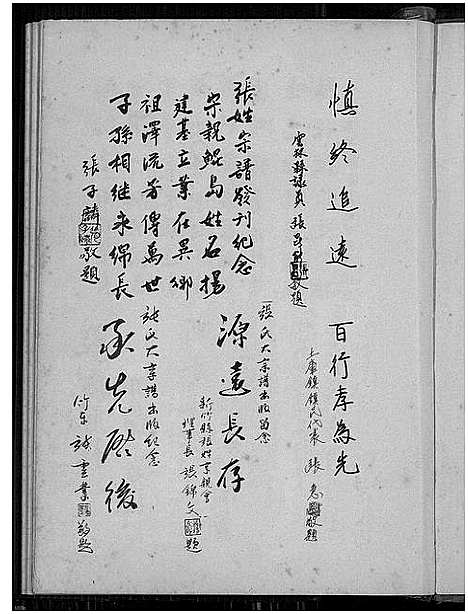 慎終追遠
雲林縣議員 張 敬題
百行孝為先
土庫鎮鎮民代表 張 敬題
張姓宗譜發刊紀念
宗親鯤島姓名揚
建基立業在異鄉
祖澤流芳傳萬世
子孫相繼永綿長
張子麟 敬題
張氏大宗譜出版留念
源遠長存
新竹縣張姓宗親會
理事長 張錦文 題
張氏大宗譜出版紀念
承先啟後
竹東 張 業 敬題